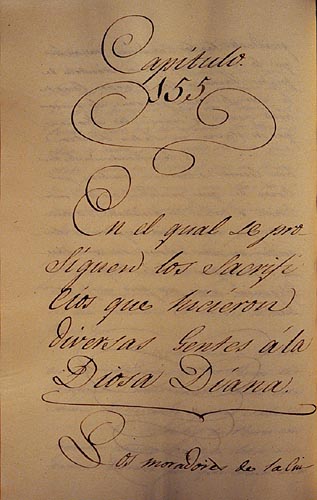 Capitulo.
155
En el qual se pro-
siguen los sacrifi
cios que hicieron
diversas Gentes á la
Diosa Diana.
Los moradores de la Ciu-